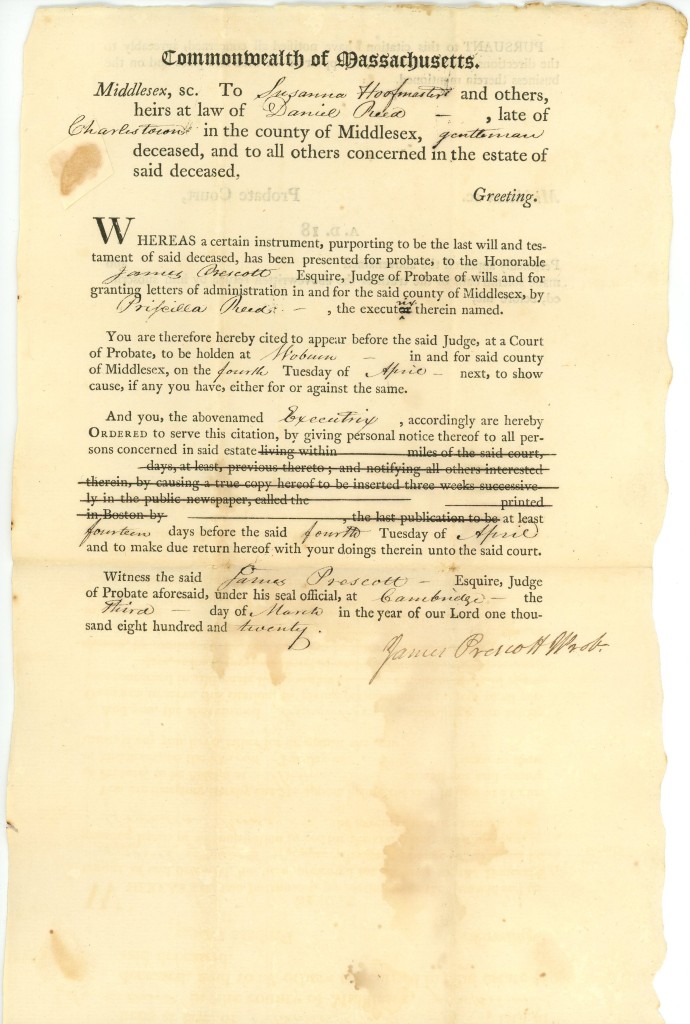 Commonwealth of Massachusetts.
Middlesex, sc. To Susanna Hoofmaster and others,
heirs at law of Daniel Reed - , late of
Charlestown in the county of Middlesex, gentleman
deceased, and to all others concerned in the estate of
said deceased,
Greeting.
WHEREAS a certain instrument, purporting to be the last will and tes-
tament of said deceased, has been presented for probate, to the Honorable
James Prescott Esquire, Judge of Probate of wills and for
granting letters of administration in and for the said county of Middlesex, by
Priscilla Reed - , the executrix therein named.
You are therefore hereby cited to appear before the said Judge, at a Court
of Probate, to be holden at Woburn - in and for said county
of Middlesex, on the fourth Tuesday of April - next, to show
cause, if any you have, either for or against the same.
And you, the abovenamed Executrix , accordingly are hereby
ORDERED to serve this citation, by giving personal notice thereof to all per-
sons concerned in said estate living within miles of the said court,
days, at least, previous thereto; and notifying all others interested
therein, by causing a true copy hereof to be inserted three weeks successive-
ly in the public newspaper, called the printed
in Boston by , the last publication to be at least
fourteen days before the said fourth Tuesday of April
and to make due return hereof with your doings therein unto the said court.
Witness the said James Prescott - Esquire, Judge
of Probate aforesaid, under his seal official, at Cambridge - the
third - day of March in the year of our Lord one thou-
sand eight hundred and twenty.
James Prescott